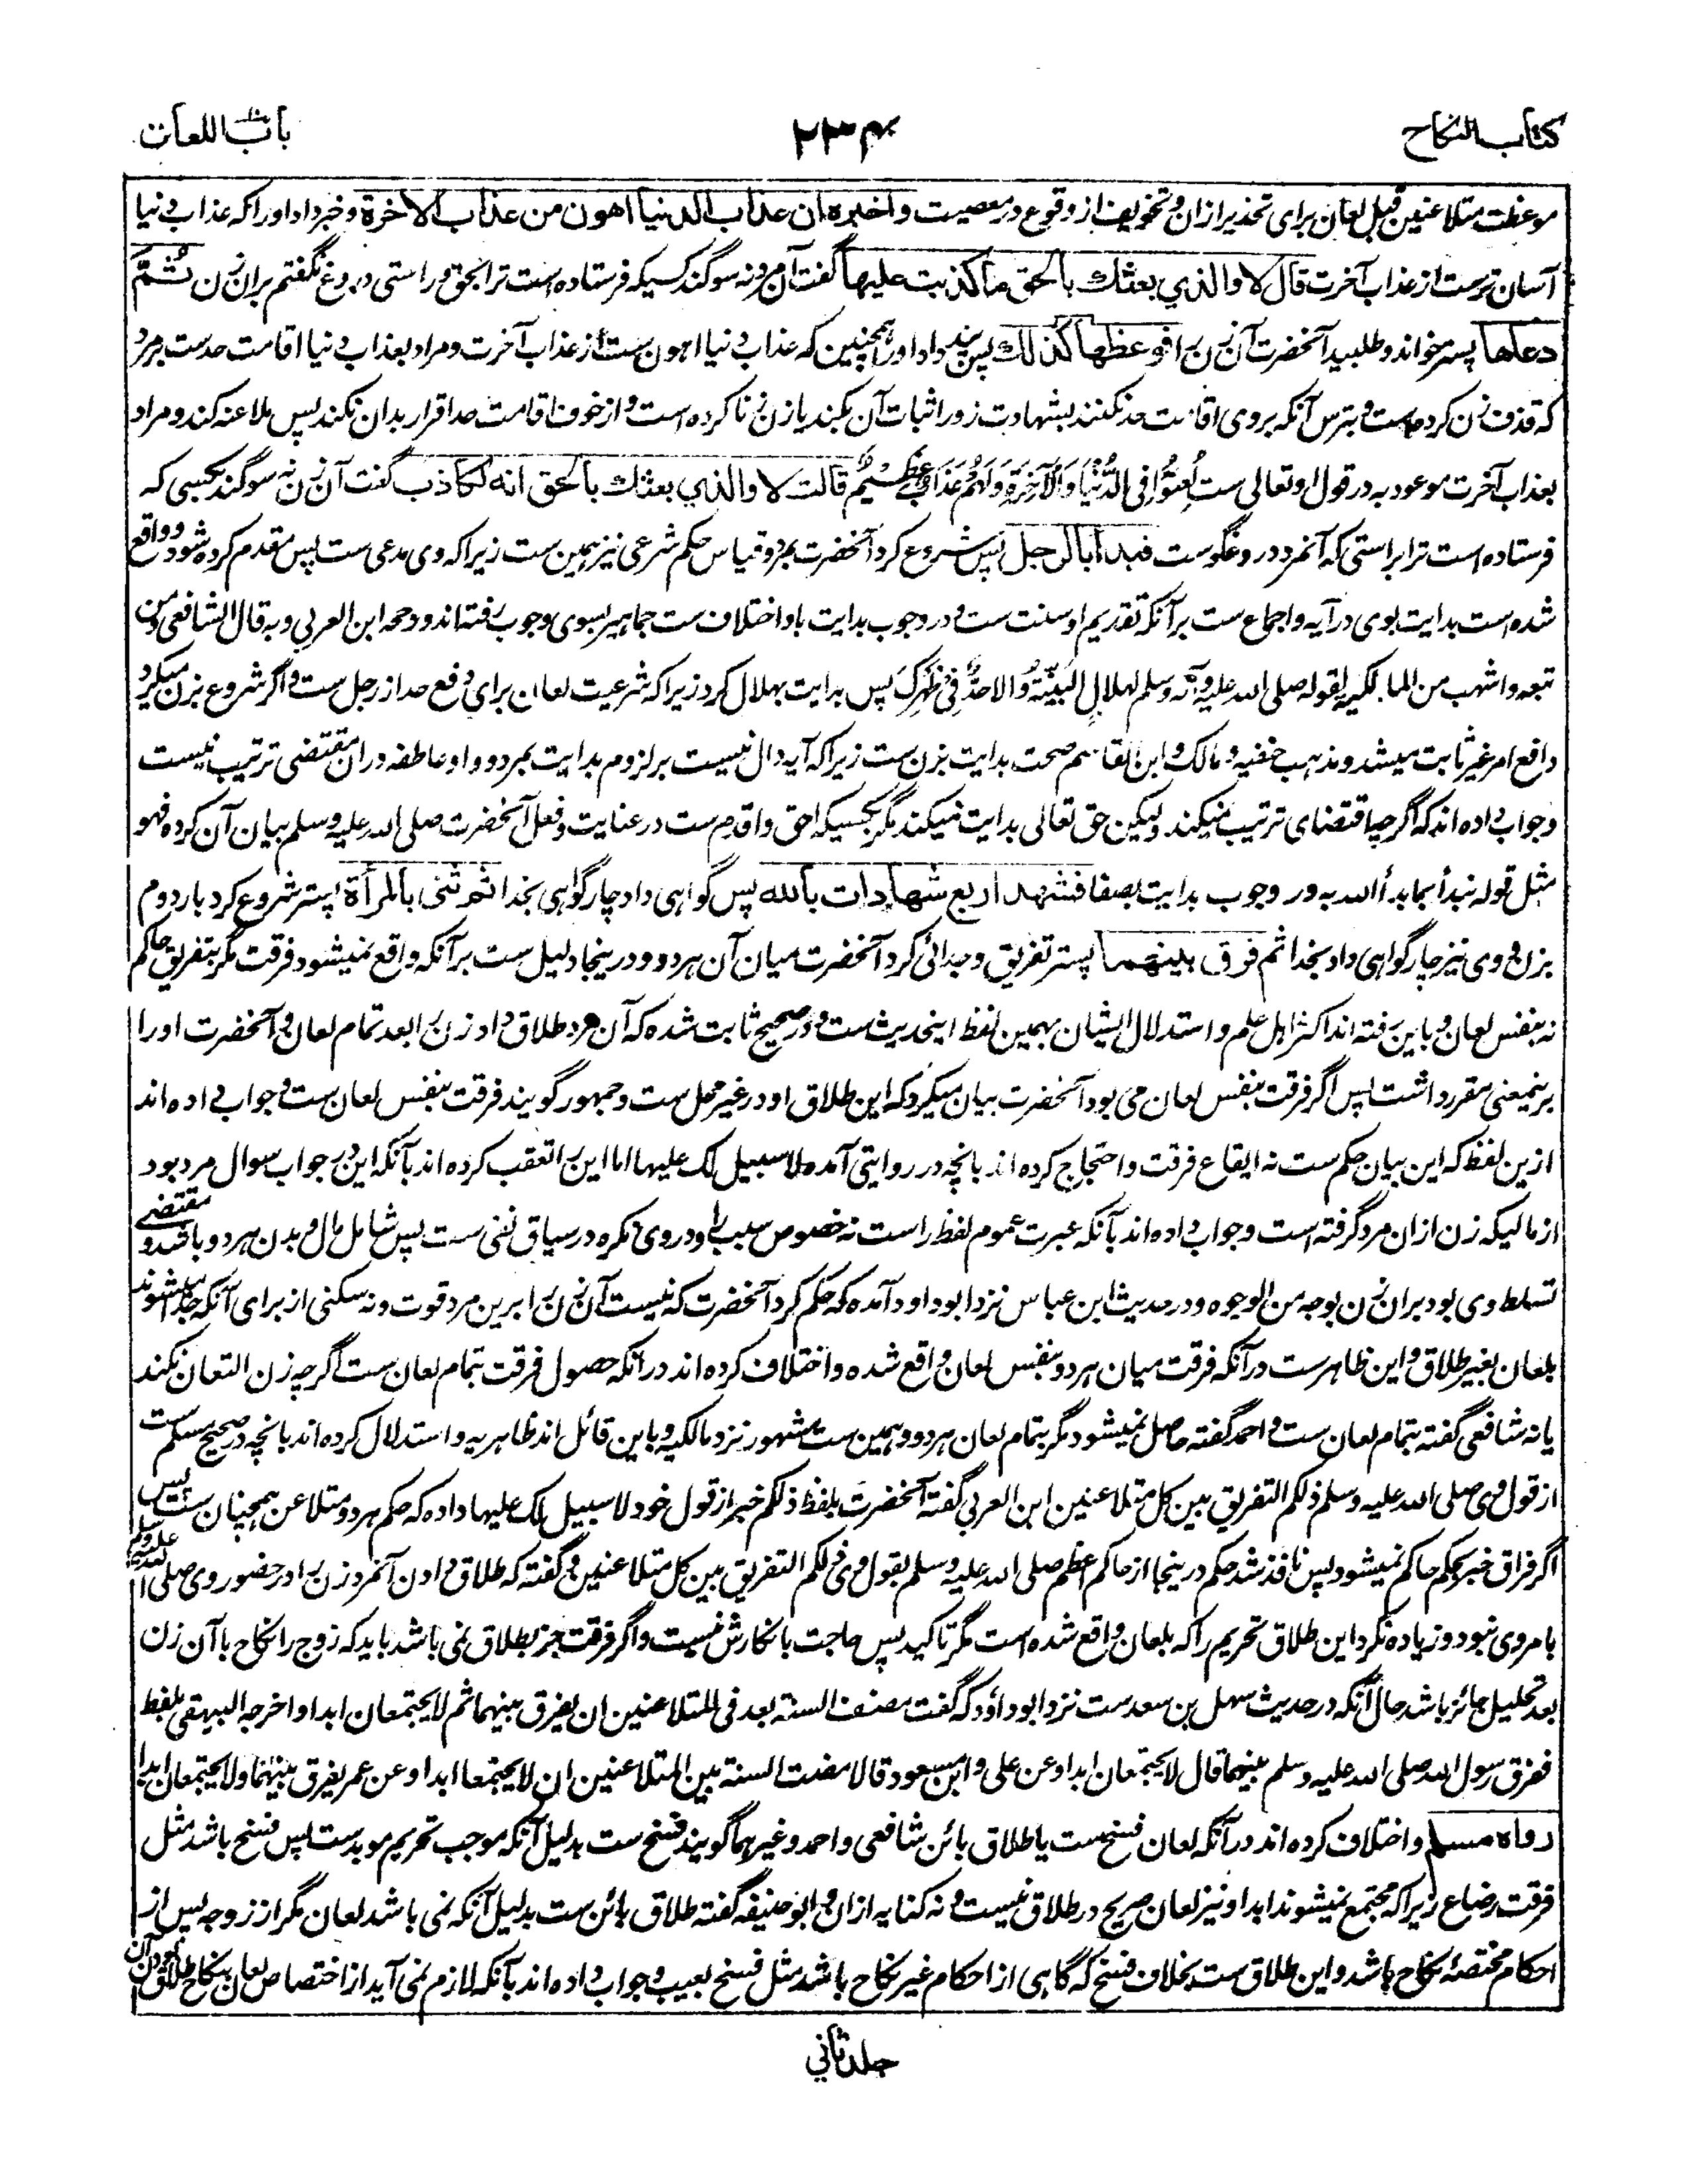 كتاب النكاح
۲۳۴
باب اللعان
موعظت متلاعنین قبل لعان برای تحذیر ازان و تخویف از وقوع در معصیت و اخبره ان عذاب الدنیا اهون من عذاب الاخرة و خبر داد او را که عذاب دنیا
آسان ترست از عذاب آخرت قال لا والذي بعثك بالحق ما كذبت عليها گفت آن مرد نه سوگند کسیکه فرستاده است ترا بحق و راستی دروغ نگفتم بران زن ثُمَّ
دعاها پستر خواند و طلبید آنحضرت آن زن را فوعظها كذلك پس پند داد او را همچنین که عذاب دنیا اهون ست از عذاب آخرت و مراد بعذاب دنیا اقامت حدست بر مرد
که قذف زن کرده است و بترس آنکه بروی اقامت حد نکنند بشهادت زور اثبات آن بکند یا زن زنا کرده است و از خوف اقامت حد اقرار بدان نکند پس ملاعنه کند و مراد
بعذاب آخرت موعود به در قول او تعالی ست لُعِنُوا فِی الدُّنْیَا وَالْآخِرَةِ وَلَهُمْ عَذَابٌ عَظِیْمٌ قالت لا والذي بعثك بالحق انه لكاذب گفت آن زن نه سوگند بکسی که
فرستاده است ترا براستی که آنمرد دروغگوست فبدأ بالرجل پس شروع کرد آنحضرت بمرد و قیاس حکم شرعی نیز همین ست زیرا که وی مدعی ست پس مقدم کرده شود و واقع
شده است بدایت بوی در آیه و اجماع ست بر آنکه تقدیم او سنت ست و در وجوب بدایت باو اختلاف ست جماهیر بسوی وجوب رفته اند و رجحه ابن العربی و به قال الشافعی و من
تبعه و اشهب من المالکیه لقوله صلی الله علیه وآله وسلم لهلال البَیِّنَةُ وَالا حَدٌّ فِیْ ظَهْرِكَ پس بدایت بهلال کرد زیرا که شرعیت لعان برای دفع حد از رجل ست و اگر شروع بزن میکرد
دافع امر غیر ثابت میشد و مذهب حنفیه و مالک و ابن القاسم صحت بدایت بزن ست زیرا که آیه دال نیست بر لزوم بدایت بمرد و واو عاطفه دران مقتضی ترتیب نیست
و جواب داده اند که اگر چه اقتضای ترتیب نمیکند ولیکن حق تعالی بدایت نمیکند مگر بکسیکه احق و اقدم ست در عنایت و فعل آنحضرت صلی الله علیه وسلم بیان آن کرده فهو
مثل قوله نبدأ بما بدأ الله به در وجوب بدایت بصفا فشهد اربع شهادات بالله پس گواهی داد چار گواهی بخدا ثم ثنى بالمرأة پستر شروع کرد بار دوم
بزن و وی نیز چار گواهی داد بخدا ثم فرق بينهما پستر تفریق و جدائی کرد آنحضرت میان آن هردو و درینجا دلیل ست بر آنکه واقع نمیشود فرقت مگر بتفریق حاکم
نه بنفس لعان و باین رفته اند اکثر اهل علم و استدلال ایشان بهمین لفظ اینحدیث ست و در صحیح ثابت شده که آن مرد طلاق داد زن را بعد تمام لعان و آنحضرت او را
برینمعنی مقرر داشت پس اگر فرقت بنفس لعان می بود آنحضرت بیان میکرد که این طلاق او در غیر محل ست و جمهور گویند فرقت بنفس لعان ست و جواب داده اند
ازین لفظ که این بیان حکم ست نه ایقاع فرقت و احتجاج کرده اند بانچه در روایتی آمده لا سبیل لک علیها اما این را تعقب کرده اند بآنکه این در جواب سوال مرد بود
از مالیکه زن ازان مرد گرفته است و جواب داده اند بآنکه عبرت عموم لفظ راست نه خصوص سبب را و در وی نکره در سیاق نفی ست پس شامل مال و بدن هر دو باشد و مقتضی
تسلط وی بود بران زن بوجه من الوجوه و در حدیث ابن عباس نزد ابوداود آمده که حکم کرد آنحضرت که نیست آن زن را برین مرد قوت و نه سکنی از برای آنکه جدا میشوند
بلعان بغیر طلاق و این ظاهرست در آنکه فرقت میان هر دو بنفس لعان واقع شده و اختلاف کرده اند در آنکه حصول فرقت بتمام لعان ست اگرچه زن التعان نکند
یا نه شافعی گفته بتمام لعان ست و احمد گفته حاصل نمیشود مگر بتمام لعان هر دو و همین ست مشهور نزد مالکیه و باین قائل اند ظاهریه و استدلال کرده اند بانچه در صحیح مسلم ست
از قول وی صلی الله علیه وسلم ذلکم التفریق بین کل متلاعنین ابن العربی گفته آنحضرت بلفظ ذلکم خبر از قول خود لا سبیل لک علیها داده که حکم هر دو متلاعن همچنان ست پس
اگر فراق خبر بحکم حاکم نمیشود پس نافذ شد حکم درینجا از حاکم اعظم صلی الله علیه وسلم بقول وی ذلکم التفریق بین کل متلاعنین و گفته که طلاق دادن آنمرد زن را در حضور وی صلی الله علیه وسلم
بامر وی نبود و زیاده نکرد این طلاق تحریم را که بلعان واقع شده است مگر تاکید پس حاجت بانکارش نیست و اگر فرقت جز بطلاق نمی باشد باید که زوج را نکاح با آن زن
بعد تحلیل جائز باشد حال آنکه در حدیث سهل بن سعد ست نزد ابوداؤد که گفت مضت السنة بعد فی المتلاعنین ان یفرق بینهما ثم لا یجتمعان ابدا و اخرجه البیهقی بلفظ
ففرق رسول الله صلی الله علیه وسلم بینهما قال لا یجتمعان ابدا و عن علی و ابن مسعود قالا مضت السنة بین المتلاعنین ان لا یجتمعا ابدا و عن عمر یفرق بینهما ولا یجتمعان ابدا
رواه مسلم و اختلاف کرده اند در آنکه لعان فسخ ست یا طلاق بائن شافعی و احمد و غیرهما گویند فسخ ست بدلیل آنکه موجب تحریم موبدست پس فسخ باشد مثل
فرقت رضاع زیرا که مجتمع نمیشوند ابدا و نیز لعان صریح در طلاق نیست و نه کنایه ازان و ابوحنیفه گفته طلاق بائن ست بدلیل آنکه نمی باشد لعان مگر از زوجه پس از
احکام مختصهٔ نکاح باشد و این طلاق ست بخلاف فسخ که گاهی از احکام غیر نکاح باشد مثل فسخ بعیب و جواب داده اند بآنکه لازم نمی آید از اختصاص لعان بنکاح طلاق بودن آن
جلد ثانی